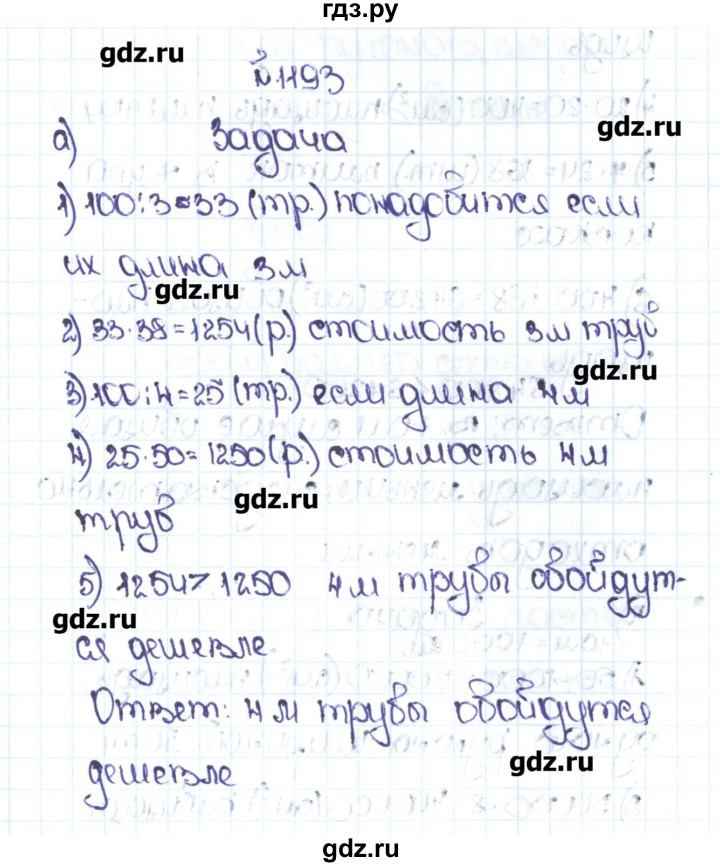 гдз.ру
gdz.ru
№1193
gdz.ru
а) Задача
1) 100:3=33 (тр.) понадобится если
их длина 3м
gdz.ru
2) 33·38=1254(р.) стоимость 3м труб
gdz.ru
3) 100:4=25 (тр.) если длина 4м
4) 25·50=1250(р.) стоимость 4м
gdz.ru
труб
5) 1254>1250 4м трубы обойдут-
gdz.ru
ся дешевле
Ответ: 4м трубы обойдутся
gdz.ru
дешевле
gdz.ru